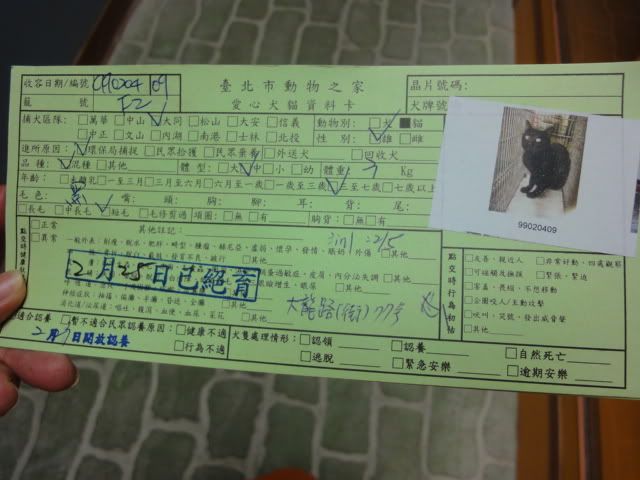 收容日期/編號 C990204109
臺北市動物之家
愛心犬貓資料卡
晶片號碼:
籠 號 F2
犬牌號
捕犬區隊: □萬華 □中山 □大同 □松山 □大安 □信義 動物別: □犬 ■貓
□中正 □文山 □內湖 □南港 □士林 □北投 性 別: □雄 □雌
進所原因: □環保局捕捉 □民眾拾獲 □民眾棄養 □外送犬 □回收犬
品 種: □混種 □其他 體 型: □大 □中 □小 □幼 體重: 7 Kg
年齡: □未離乳 □一至三月 □三月至六月 □六月至一歲 □一歲至三歲 □三至七歲 □七歲以上
毛 色: 黑 嘴: 胸: 腳: 耳: 背: 尾:
□長毛 □中長毛 □短毛 □毛修剪過 項圈: □無 □有 胸背: □無 □有
99020409
點交時健康狀
□正常
□異常
其他註記:
3in1 :2/5
2月25日已絕育
大龍路(街)77號
點交時行為初估
□友善、親近人
□非常好動、四處觀察
□可碰觸及撫摸
□緊張、緊迫
□害羞、畏縮、不想移動
□企圖咬人/主動攻擊
□吠叫、哭號、發出威脅聲
□其他
適合認養 □暫不適合民眾認養原因: □健康不適
□行為不適
2月7日開放認養
犬隻處理情形: □認領 □認養 □自然死亡
□逃脫 □緊急安樂 □逾期安樂